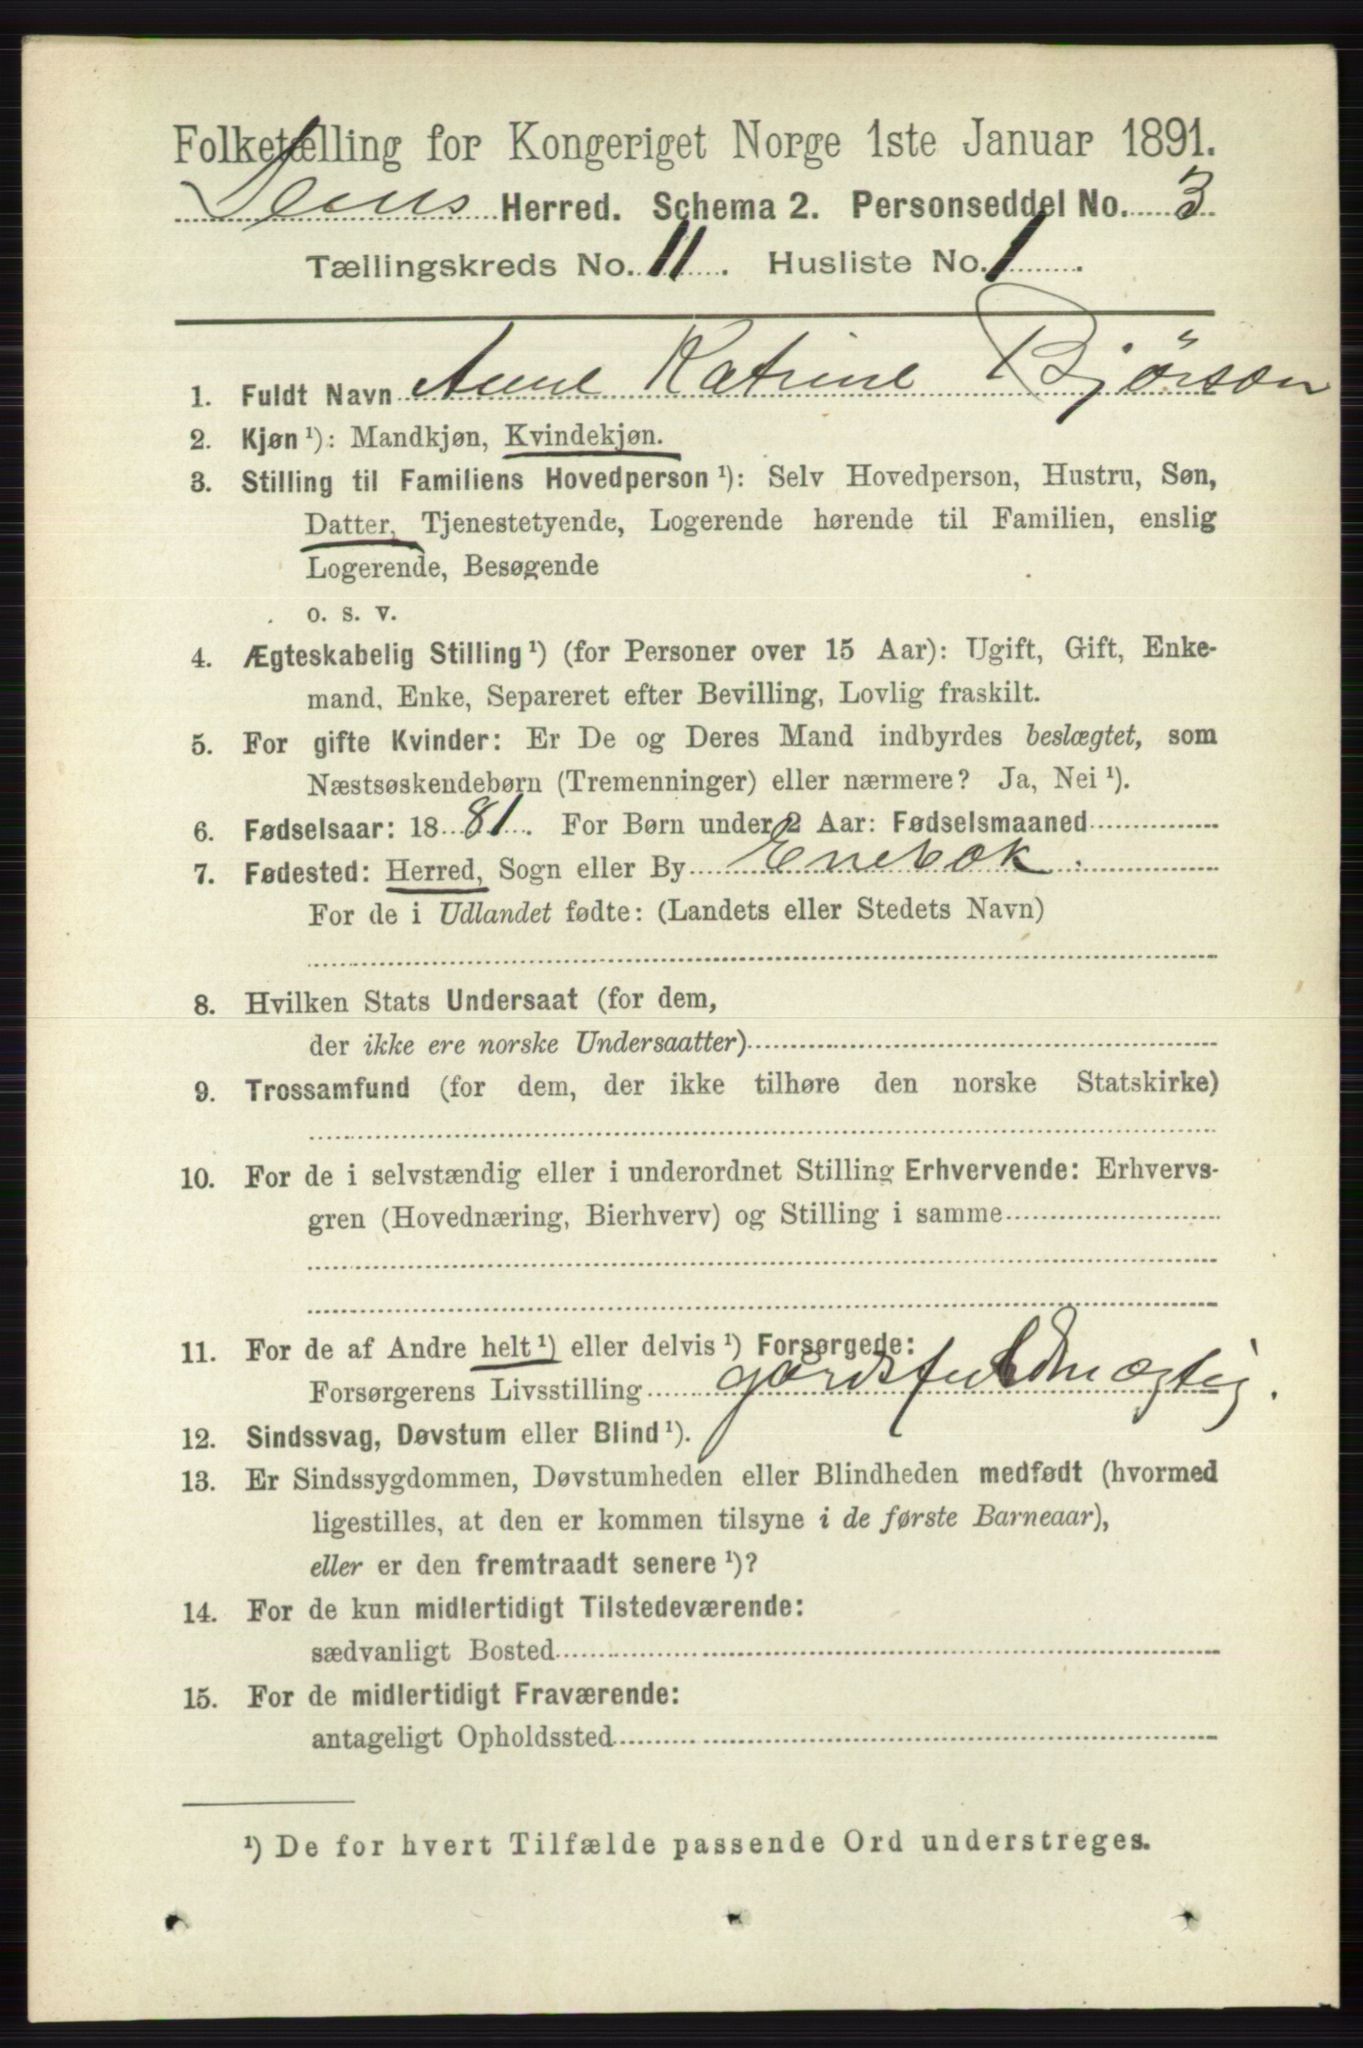 Folketælling for Kongeriget Norge 1ste Januar 1891.
Herred. Schema 2. Personseddel No. 3
Tællingskreds No. 11. Husliste No. 1.
1. Fuldt Navn Anne Katrine Bjørson
2. Kjøn ¹): Mandkjøn, Kvindekjøn.
3. Stilling til Familiens Hovedperson ¹): Selv Hovedperson, Hustru, Søn,
Datter, Tjenestetyende, Logerende hørende til Familien, enslig
Logerende, Besøgende
o. s. v.
4. Ægteskabelig Stilling ¹) (for Personer over 15 Aar): Ugift, Gift, Enke-
mand, Enke, Separeret efter Bevilling, Lovlig fraskilt.
5. For gifte Kvinder: Er De og Deres Mand indbyrdes beslægtet, som
Næstsøskendebørn (Tremenninger) eller nærmere? Ja, Nei ¹).
6. Fødselsaar: 1881. For Børn under 2 Aar: Fødselsmaaned
7. Fødested: Herred, Sogn eller By Enebak
For de i Udlandet fødte: (Landets eller Stedets Navn)
8. Hvilken Stats Undersaat (for dem,
der ikke ere norske Undersaatter)
9. Trossamfund (for dem, der ikke tilhøre den norske Statskirke)
10. For de i selvstændig eller i underordnet Stilling Erhvervende: Erhvervs-
gren (Hovednæring, Bierhverv) og Stilling i samme
11. For de af Andre helt ¹) eller delvis ¹) Forsørgede:
Forsørgerens Livsstilling gårdsfuldmægtig.
12. Sindssvag, Døvstum eller Blind ¹).
13. Er Sindssygdommen, Døvstumheden eller Blindheden medfødt (hvormed
ligestilles, at den er kommen tilsyne i de første Barneaar),
eller er den fremtraadt senere ¹)?
14. For de kun midlertidigt Tilstedeværende:
sædvanligt Bosted
15. For de midlertidigt Fraværende:
antageligt Opholdssted
¹) De for hvert Tilfælde passende Ord understreges.